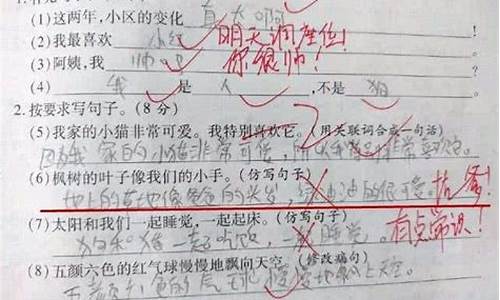 (1)这两年,小区的变化 真大啊
(2)我最喜欢 小红 明天调座位!
(3)阿姨,我 帅吧 你很帅!
(4) 我 是 人 ,不是 狗
2.按要求写句子。(8分)
(5)我家的小猫非常可爱。我特别喜欢它。(用关联词合成一句话)
因为我家的小猫非常可爱,所以我 非常喜欢它。
(6)枫树的叶子像我们的小手。(仿写句子)
地上的草地像爸爸的头发,绿油油的很可爱。 抗议!
(7)太阳和我们一起睡觉,一起起床。(仿写句子)
狗和猪一起吃饭,一起睡觉。 有点常识!
(8)五颜六色的红气球慢慢地飘向天空。(修改病句)
五颜六色的气球慢慢地飘上天空。